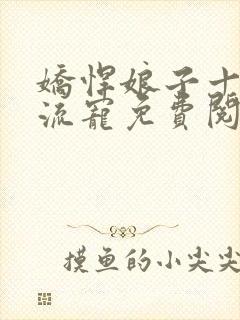 嬌悍娘子十
流寵免費閱
摸鱼的小尖尖